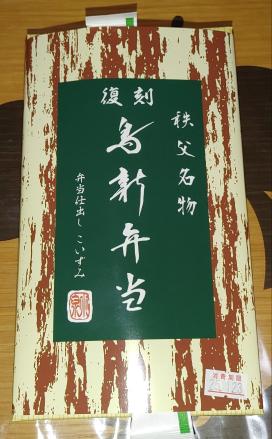 秩父名物
復刻
鳥新弁当
弁当仕出し こいずみ
消費期限